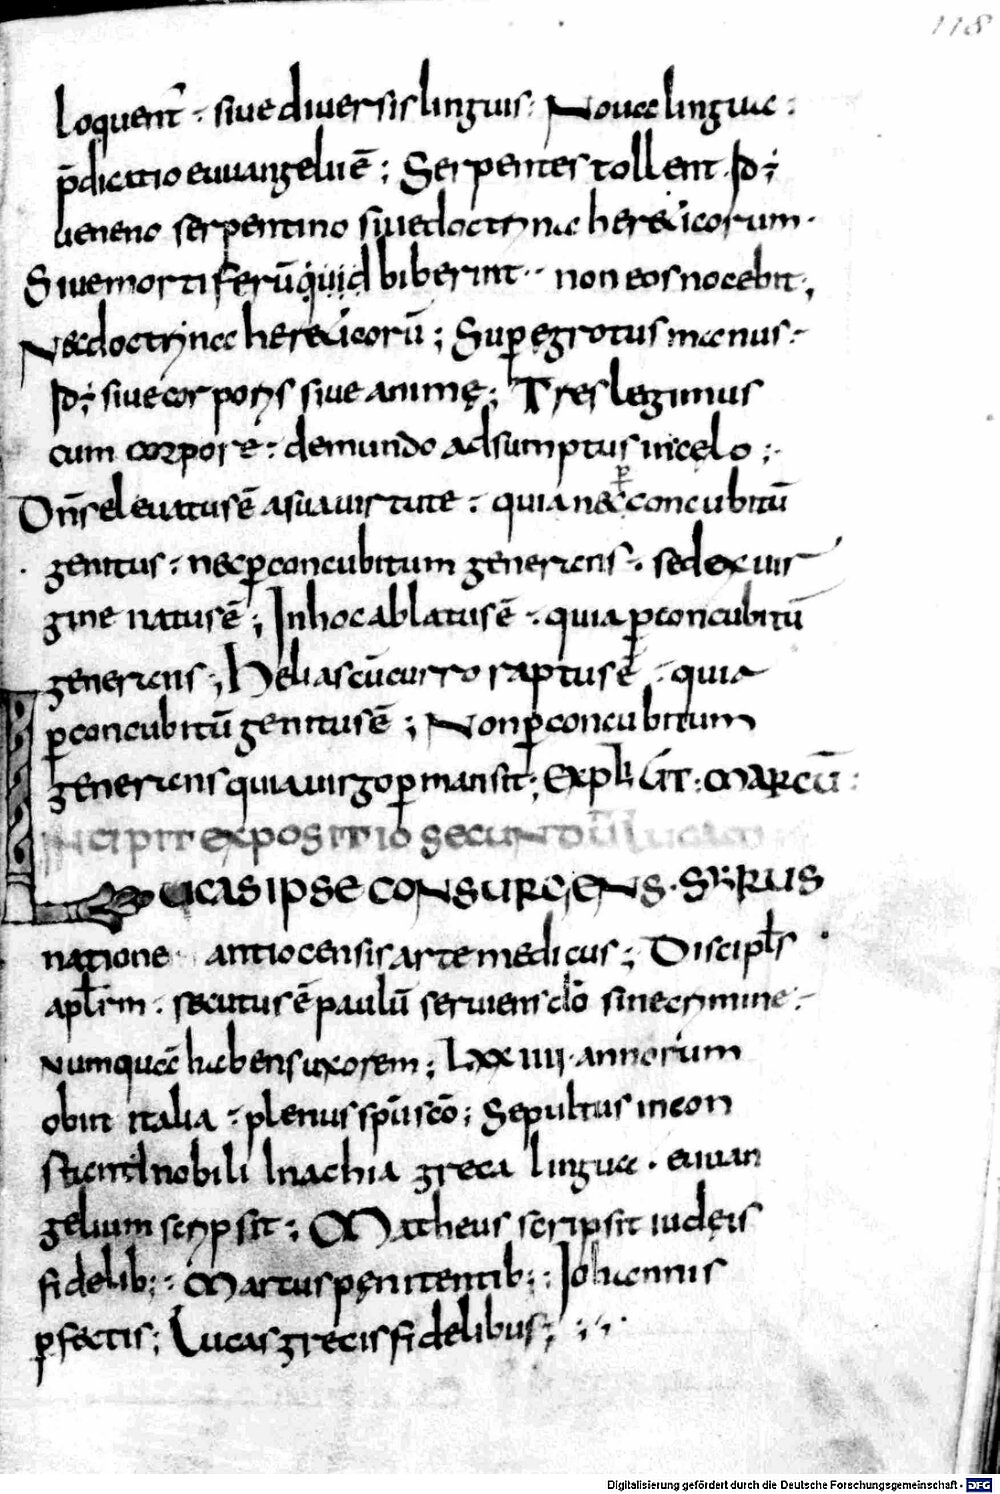 118
loquent̄ · siue diuersis linguis · Noua lingua :
p̄dicatio euuangelii ē ; Serpentes tollent · Id ÷
ueneno serpentino siue doctrina hereticorum ·
Siue mortiferū quid biberint · non eos nocebit ;
Nec doctrina hereticorū ; Super egrotus manus ·
Id ÷ siue corporis siue animę ; Tres legimus
cum corpore · de mundo adsumptus in cęlo ;
Dn̄s eleuatus ē a sua uirtute · quia nec per concubitū
genitus · nec ꝑ concubitum generans · sed ex uir
gine natus ē ; In hoc ablatus ē · quia ꝑ concubitū
generans ; Helias cū curro raptus ē · quia
ꝑ concubitū genitus ē ; Non ꝑ concubitum
generans quia uirgo ꝑmansit ; Explicit : marcū :
incipit expositio secundū lucam
Lucas ipse consurgens · syrus
natione antiocensis arte medicus ; Discipl̄s
apl̄rm · secutus ē paulū seruiens dō sine crimine ·
Numquā habens uxorem ; LXXIIII · annorum
obiit italia · plenus sp̄u scō ; Sepultus in con
stantinobili In achia greca lingua · euuan
gelium scripsit ; Matheus scripsit iudęis
fidelib; · Marcus pęnitentib; · Iohannis
ꝑfectis ; Lucas grecis fidelibus ;
Digitalisierung gefördert durch die Deutsche Forschungsgemeinschaft - DFG